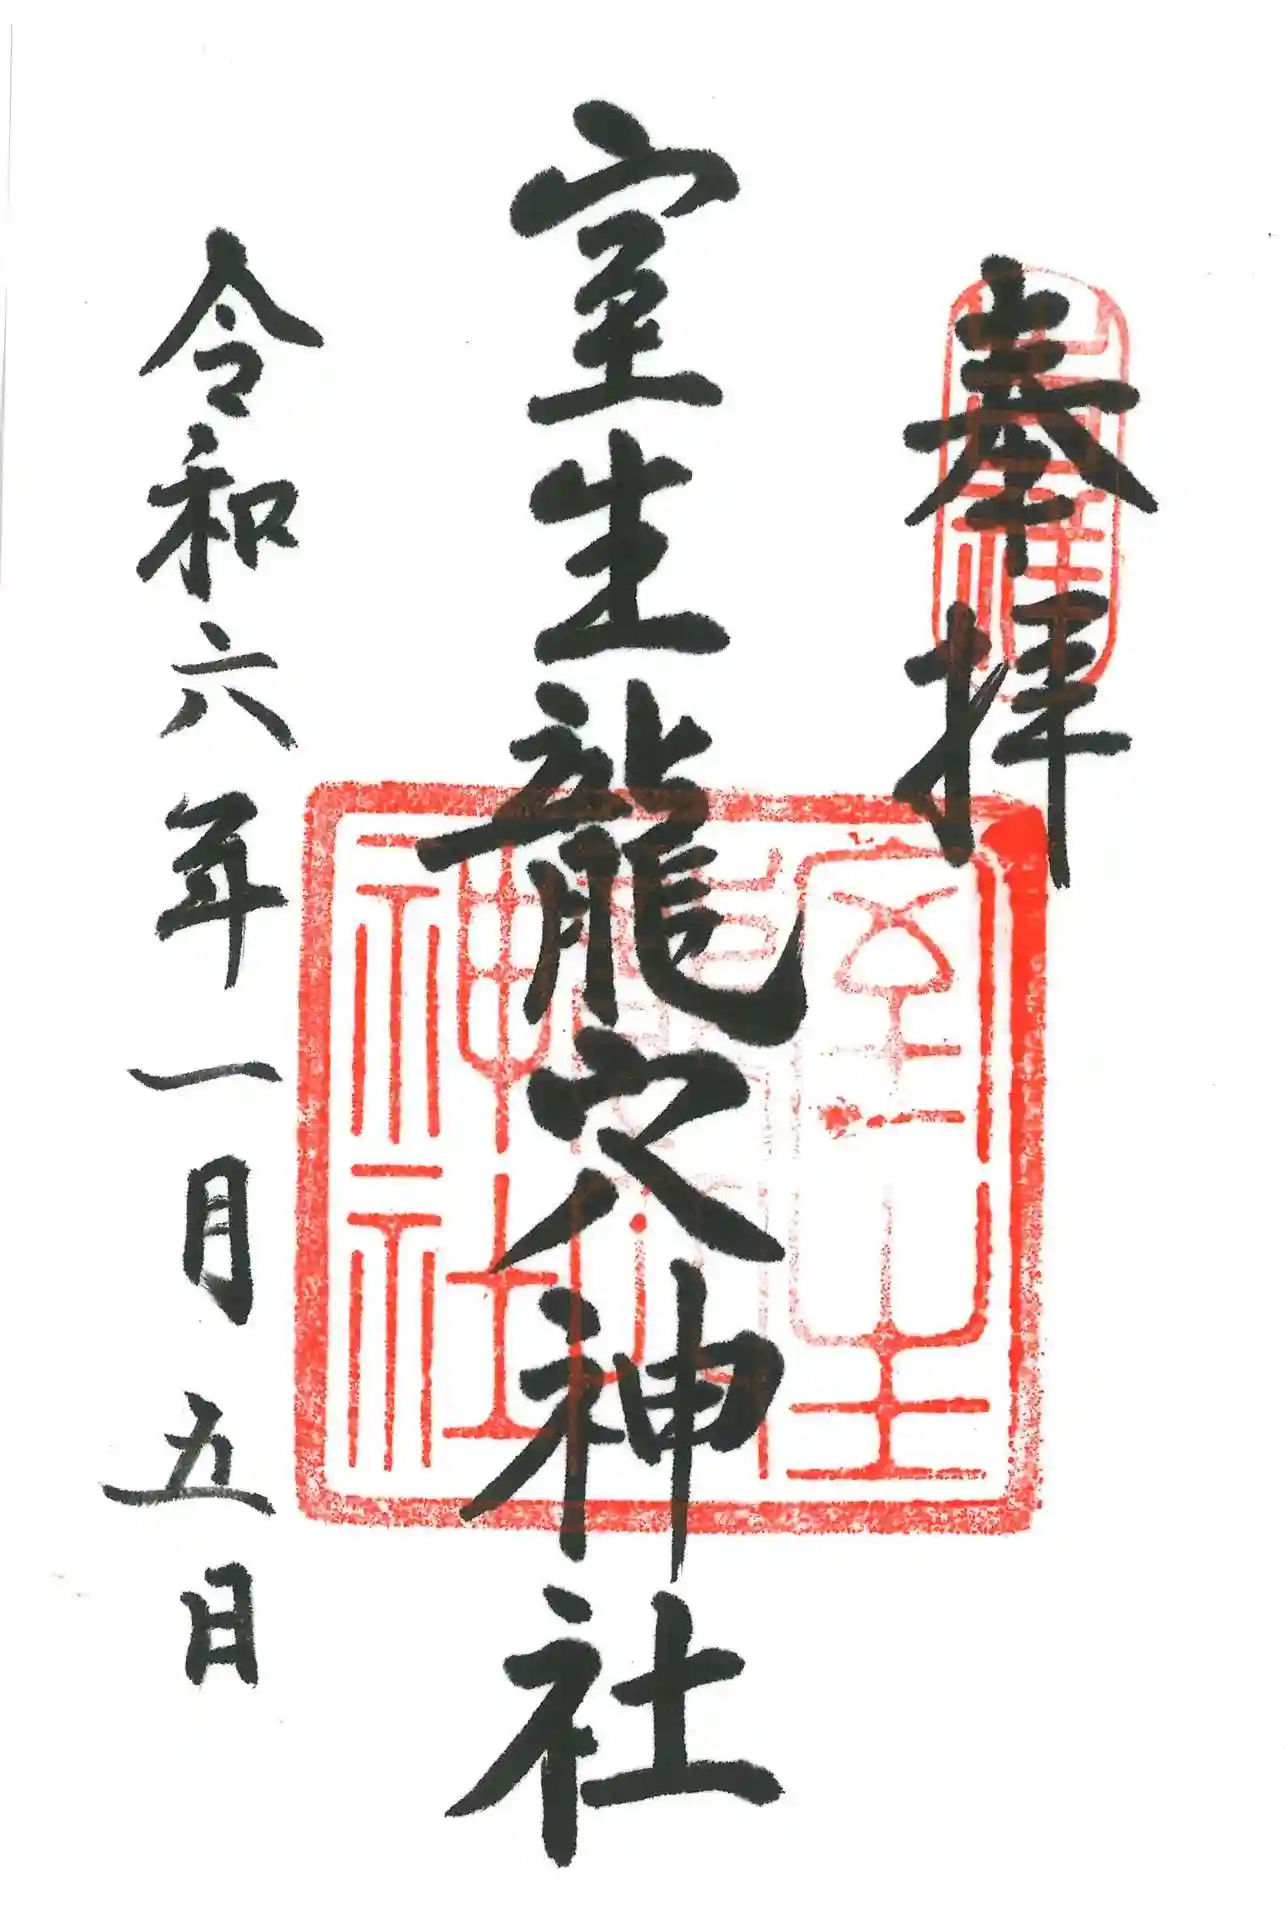 奉拝
室生龍穴神社
令和六年一月五日
室生
龍穴
神社